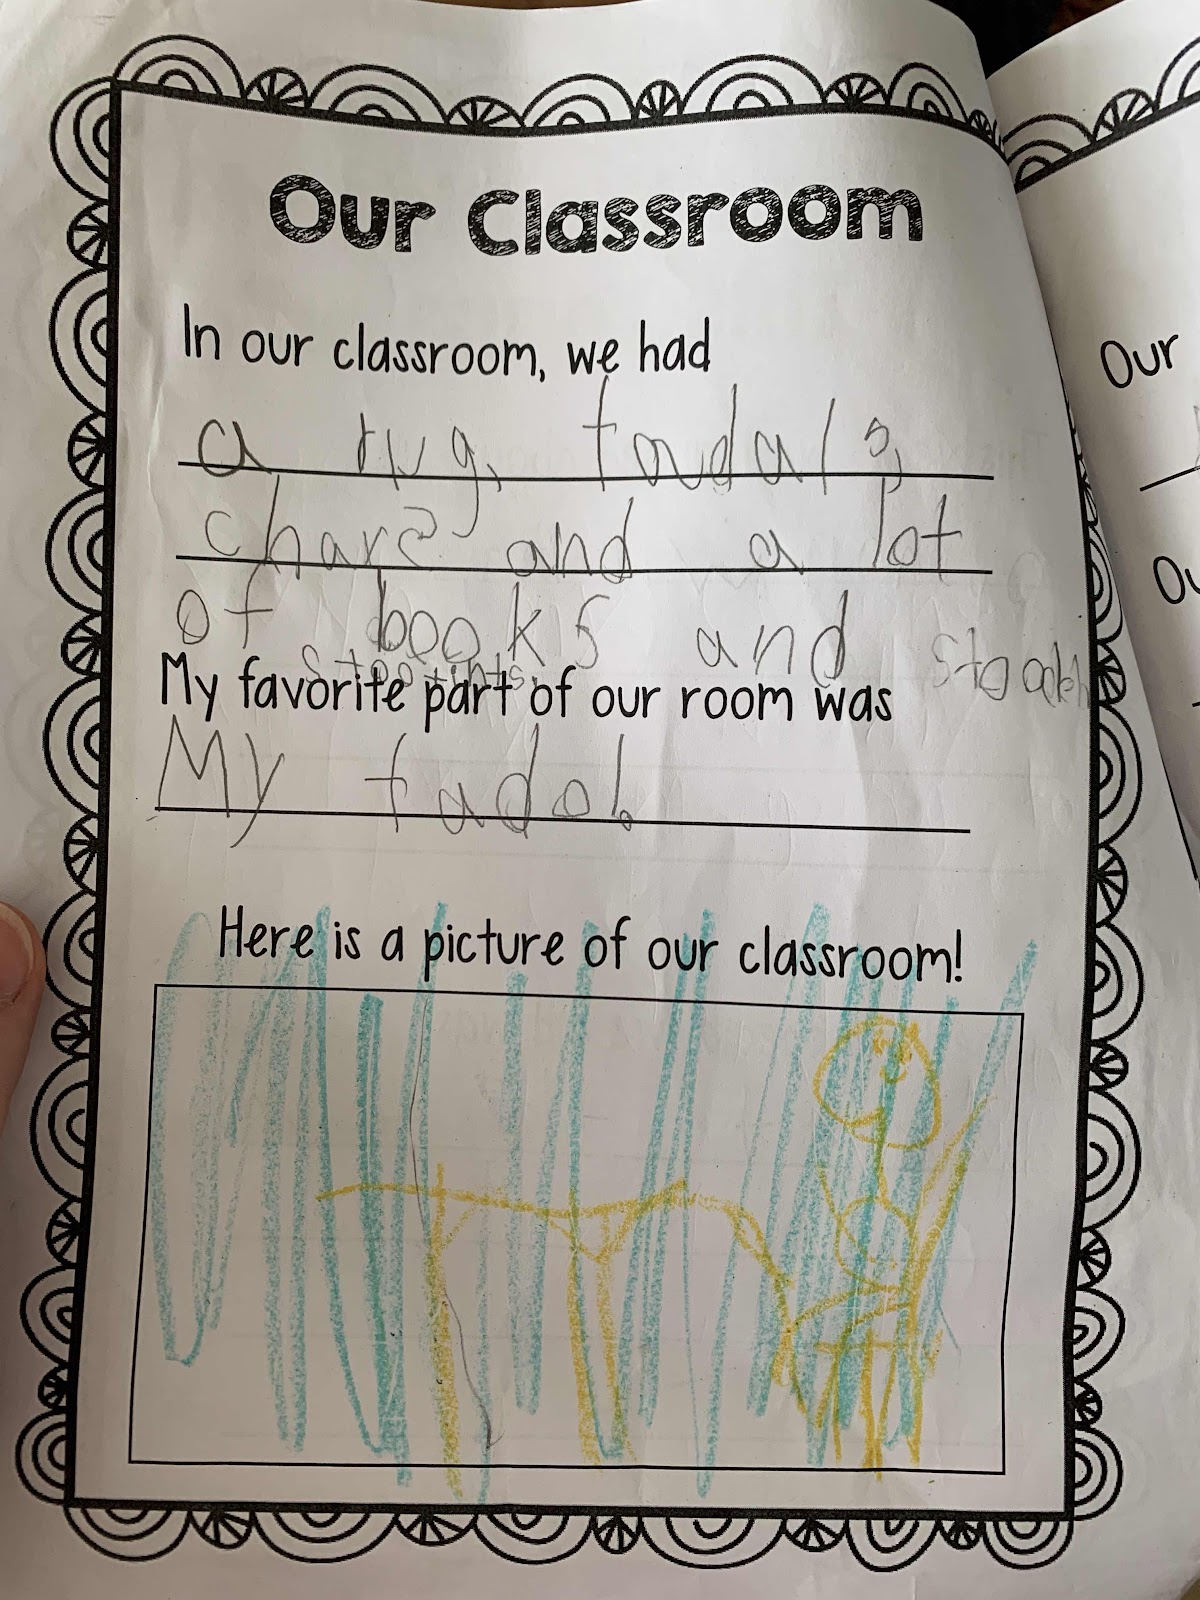 Our Classroom
In our classroom, we had
a rug, tadals,
chars and a lot
of books and
My favorite part of our room was
My tadol.
Here is a picture of our classroom!
Our